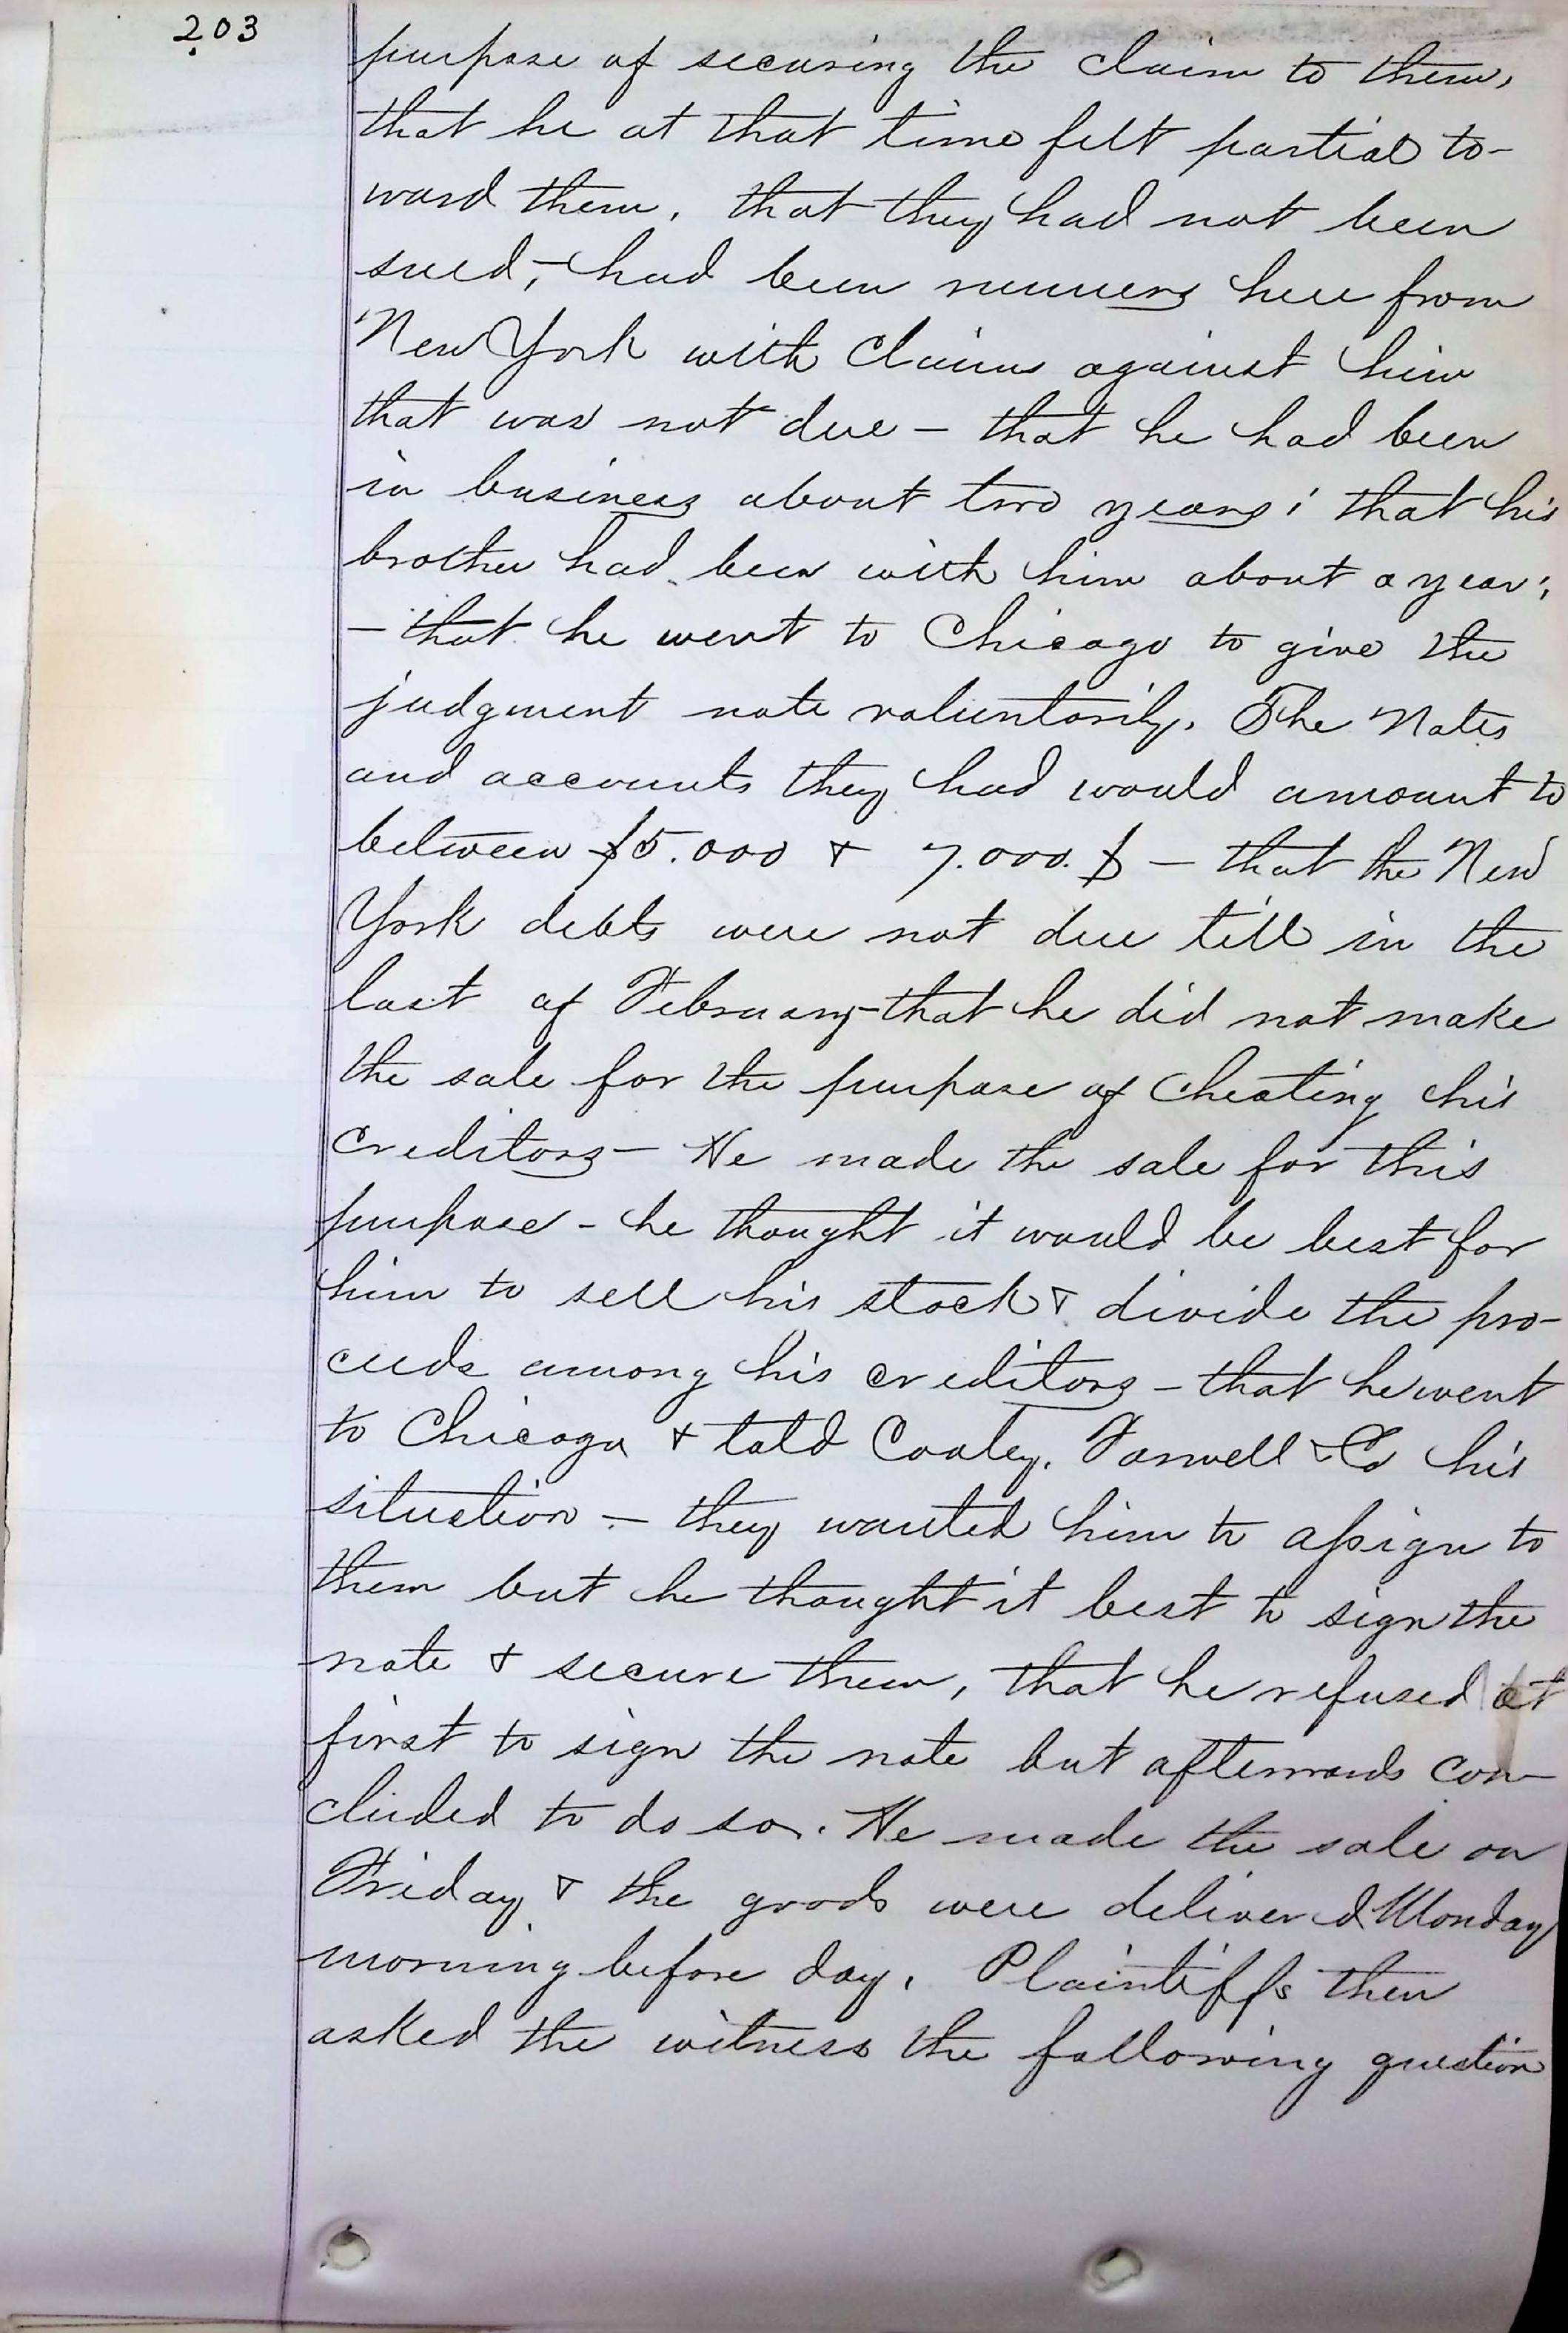 203
purpose of securing the claim to them,
that he at that time felt partial to-
ward them, that they had not been
sued,- had been runners here from
New York with claims against him
that was not due - that he had been
in business about two years; that his
brother had been with him about a year;
- that he went to Chicago to give the
judgment note voluntarily. The Notes
and accounts they had would amount to
between $5.000 & 7.000.$ - that the New
York debts were not due till in the
last of February - that he did not make
the sale for the purpose of cheating his
creditors - He made the sale for this
purpose - he thought it would be best for
him to sell his stock & divide the pro-
ceeds among his creditors - that he went
to Chicago & told Cooley, Farwell & Co his
situation - they wanted him to assign to
them but he thought it best to sign the
note & secure them, that he refused at
first to sign the note but afterwards con-
cluded to do so. He made the sale on
Friday & the goods were delivered Monday
morning before day. Plaintiffs then
asked the witness the following question